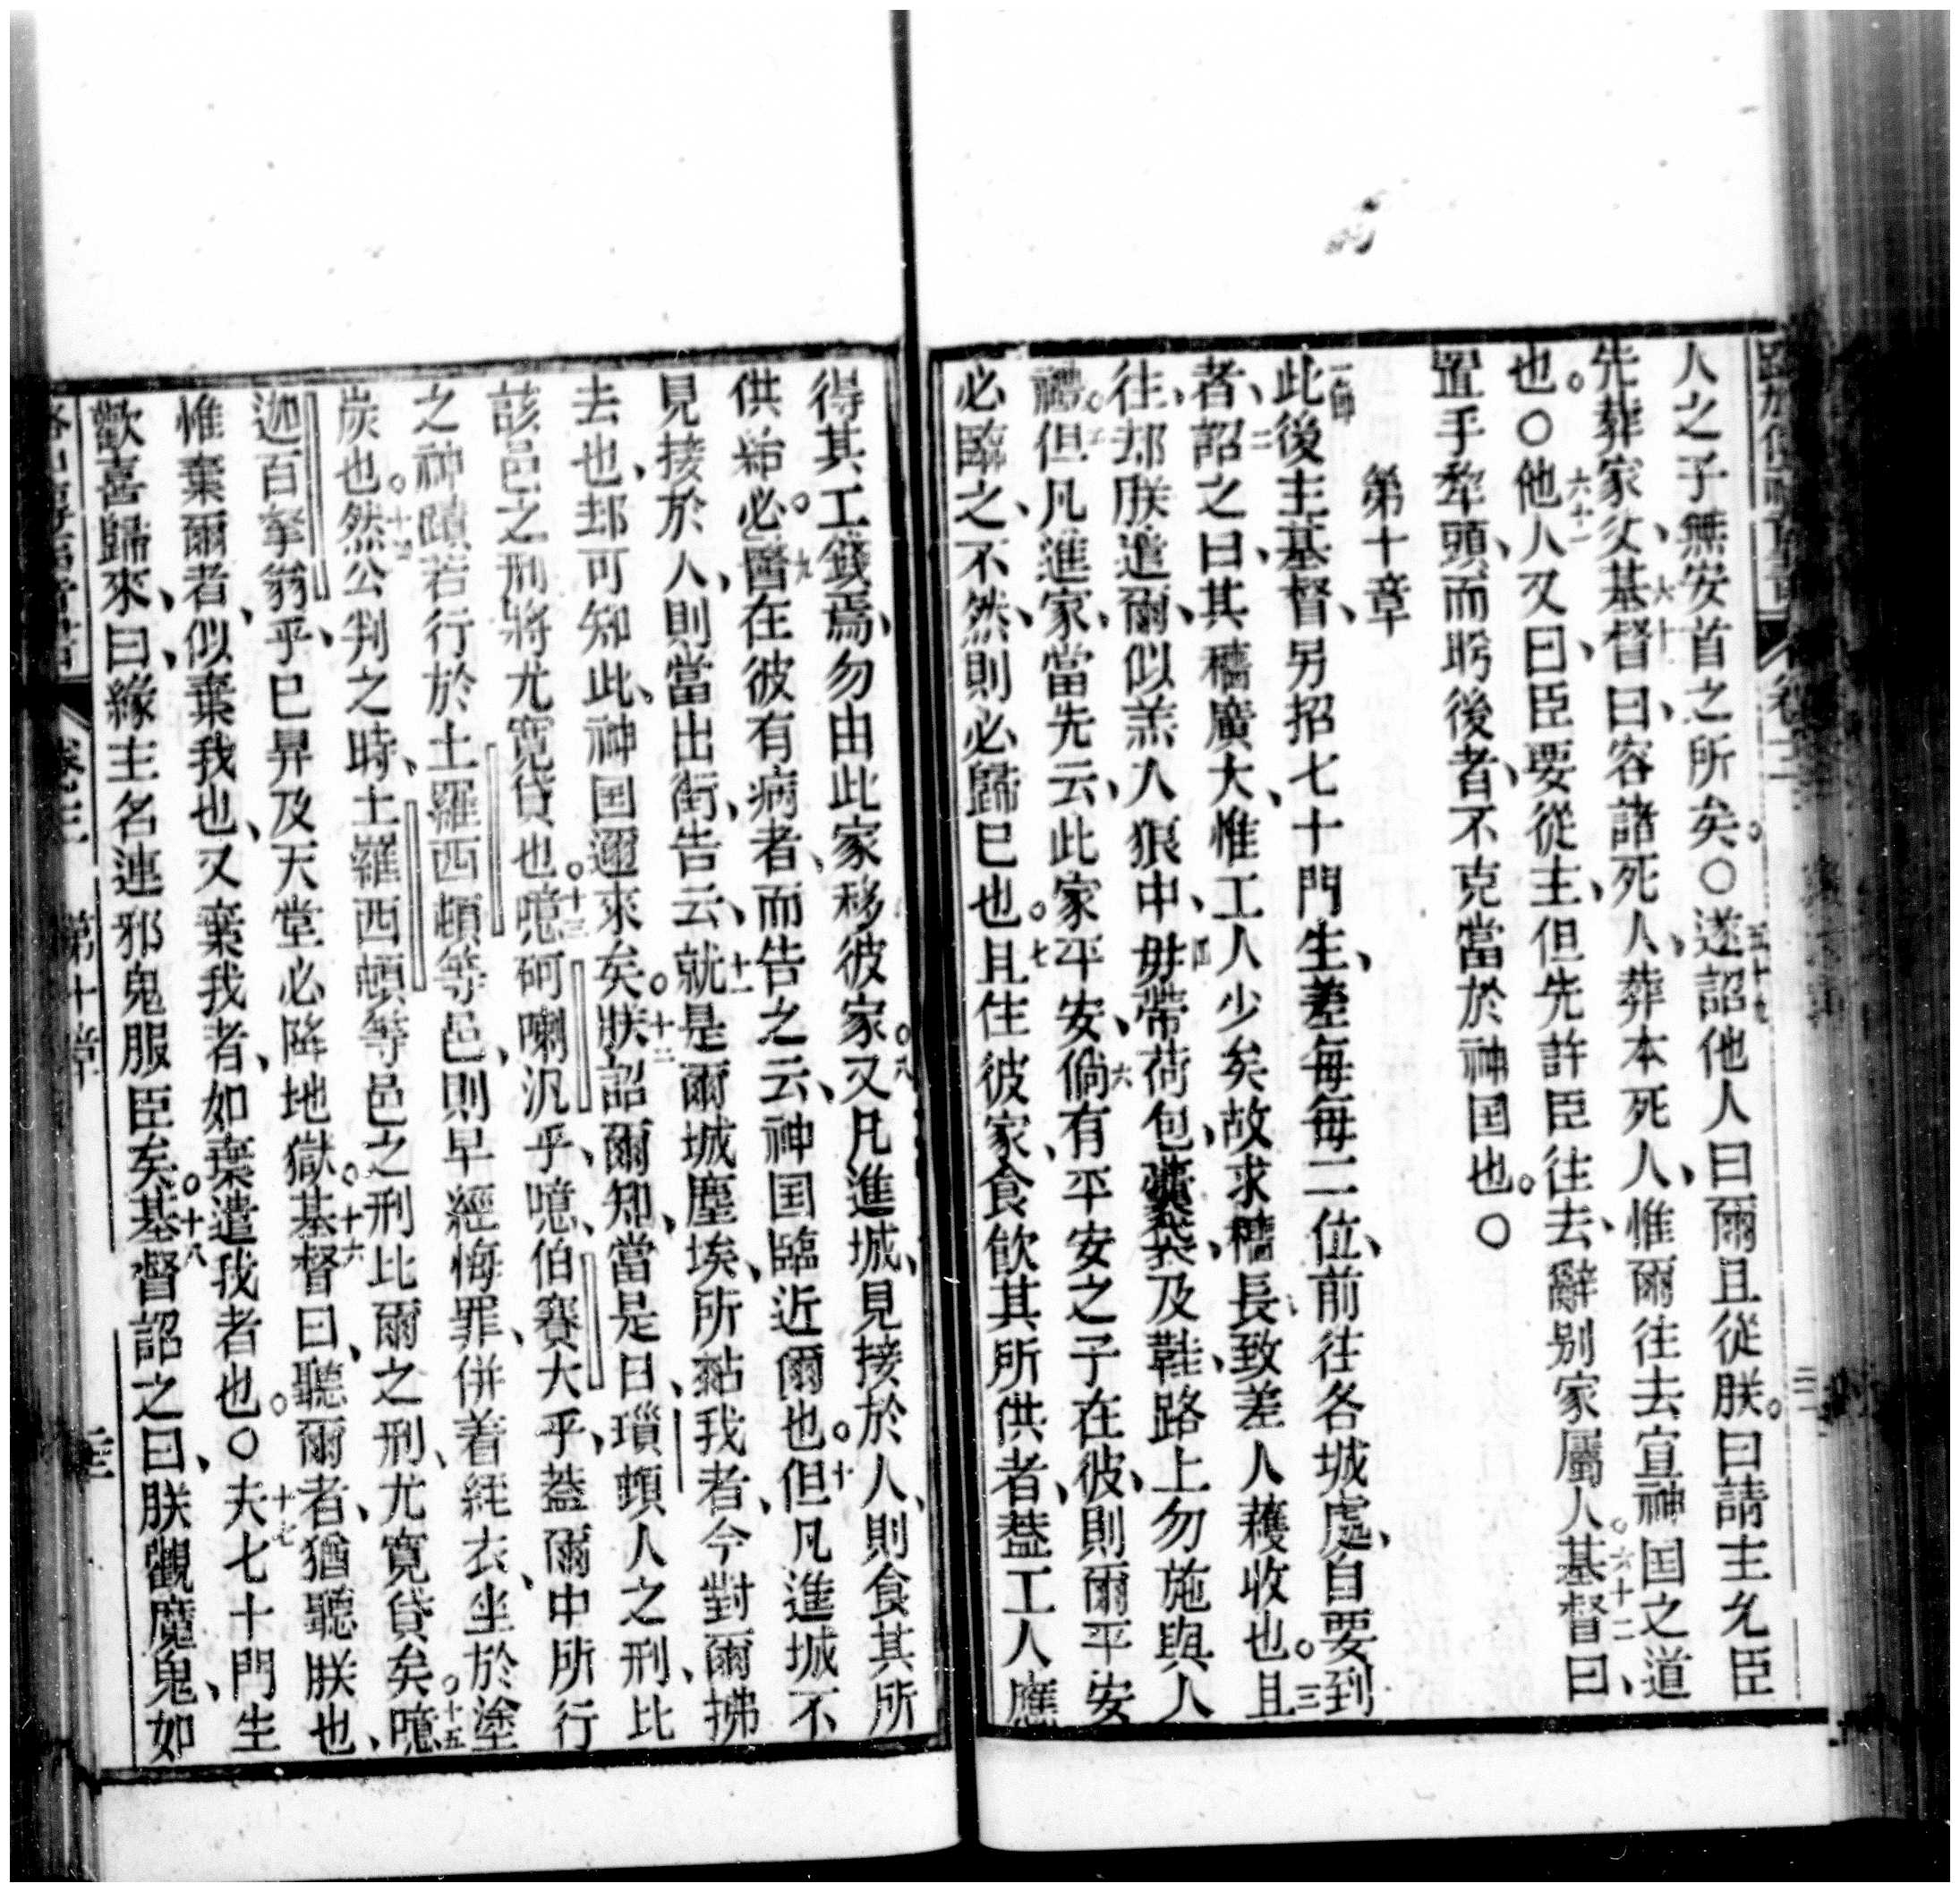 人之子無安首之所矣。〇五十九遂詔他人曰爾且從朕。曰請主允臣
先葬家父、六十基督曰、容諸死人、葬本死人、惟爾往去宣神国之道
也。〇六十一他人又曰、臣要從主、但先許臣往去、辭别家屬人。六十二基督曰、
置手犂頭、而眄後者、不克當於神国也。〇
第十章
一節此後主基督、另招七十門生、差每每二位、前往各城處、自要到
者、二詔之曰、其穡廣大、惟工人少矣故求穡長致差人穫收也。三且
往、却朕遣爾、似羔人狼中、四毋帶荷包、囊袋、及鞋、路上勿施與人
禮。五但凡進家、當先云、此家平安、六倘有平安之子在彼、則爾平安
必臨之、不然、則必歸已也。七且住彼家、食飲其所供者、葢工人應
得其工錢焉、勿由此家移彼家。八又凡進城、見接於人、則食其所
供給。九必醫在彼有病者、而告之云、神国臨近爾也。十但凡進城不
見接於人、則當出街、告云、十一就是爾城塵埃、所黏我者、今對爾拂
去也、却可知此、神国邇來矣。十二朕詔爾知、當是日、瑣頓人之刑、比
該邑之刑將尤寬貸也。十三噫砢喇汎乎、噫、伯賽大乎、葢爾中所行
之神蹟若行於土羅西頓等邑、則早經悔罪、併着絰衣、坐於塗
炭也。十四然公判之時、土羅西頓等邑之刑比爾之刑、尤寬貸矣。十五噫
迦百拏翁乎、已昇及天堂必降地獄。十六基督曰、聽爾者、猶聽朕也、
惟棄爾者、似棄我也、又棄我者、如棄遣我者也。〇十七夫七十門生
歡喜歸來、曰、緣主名連邪鬼服臣矣。十八基督詔之曰、朕觀魔鬼、如
卷三 第十章